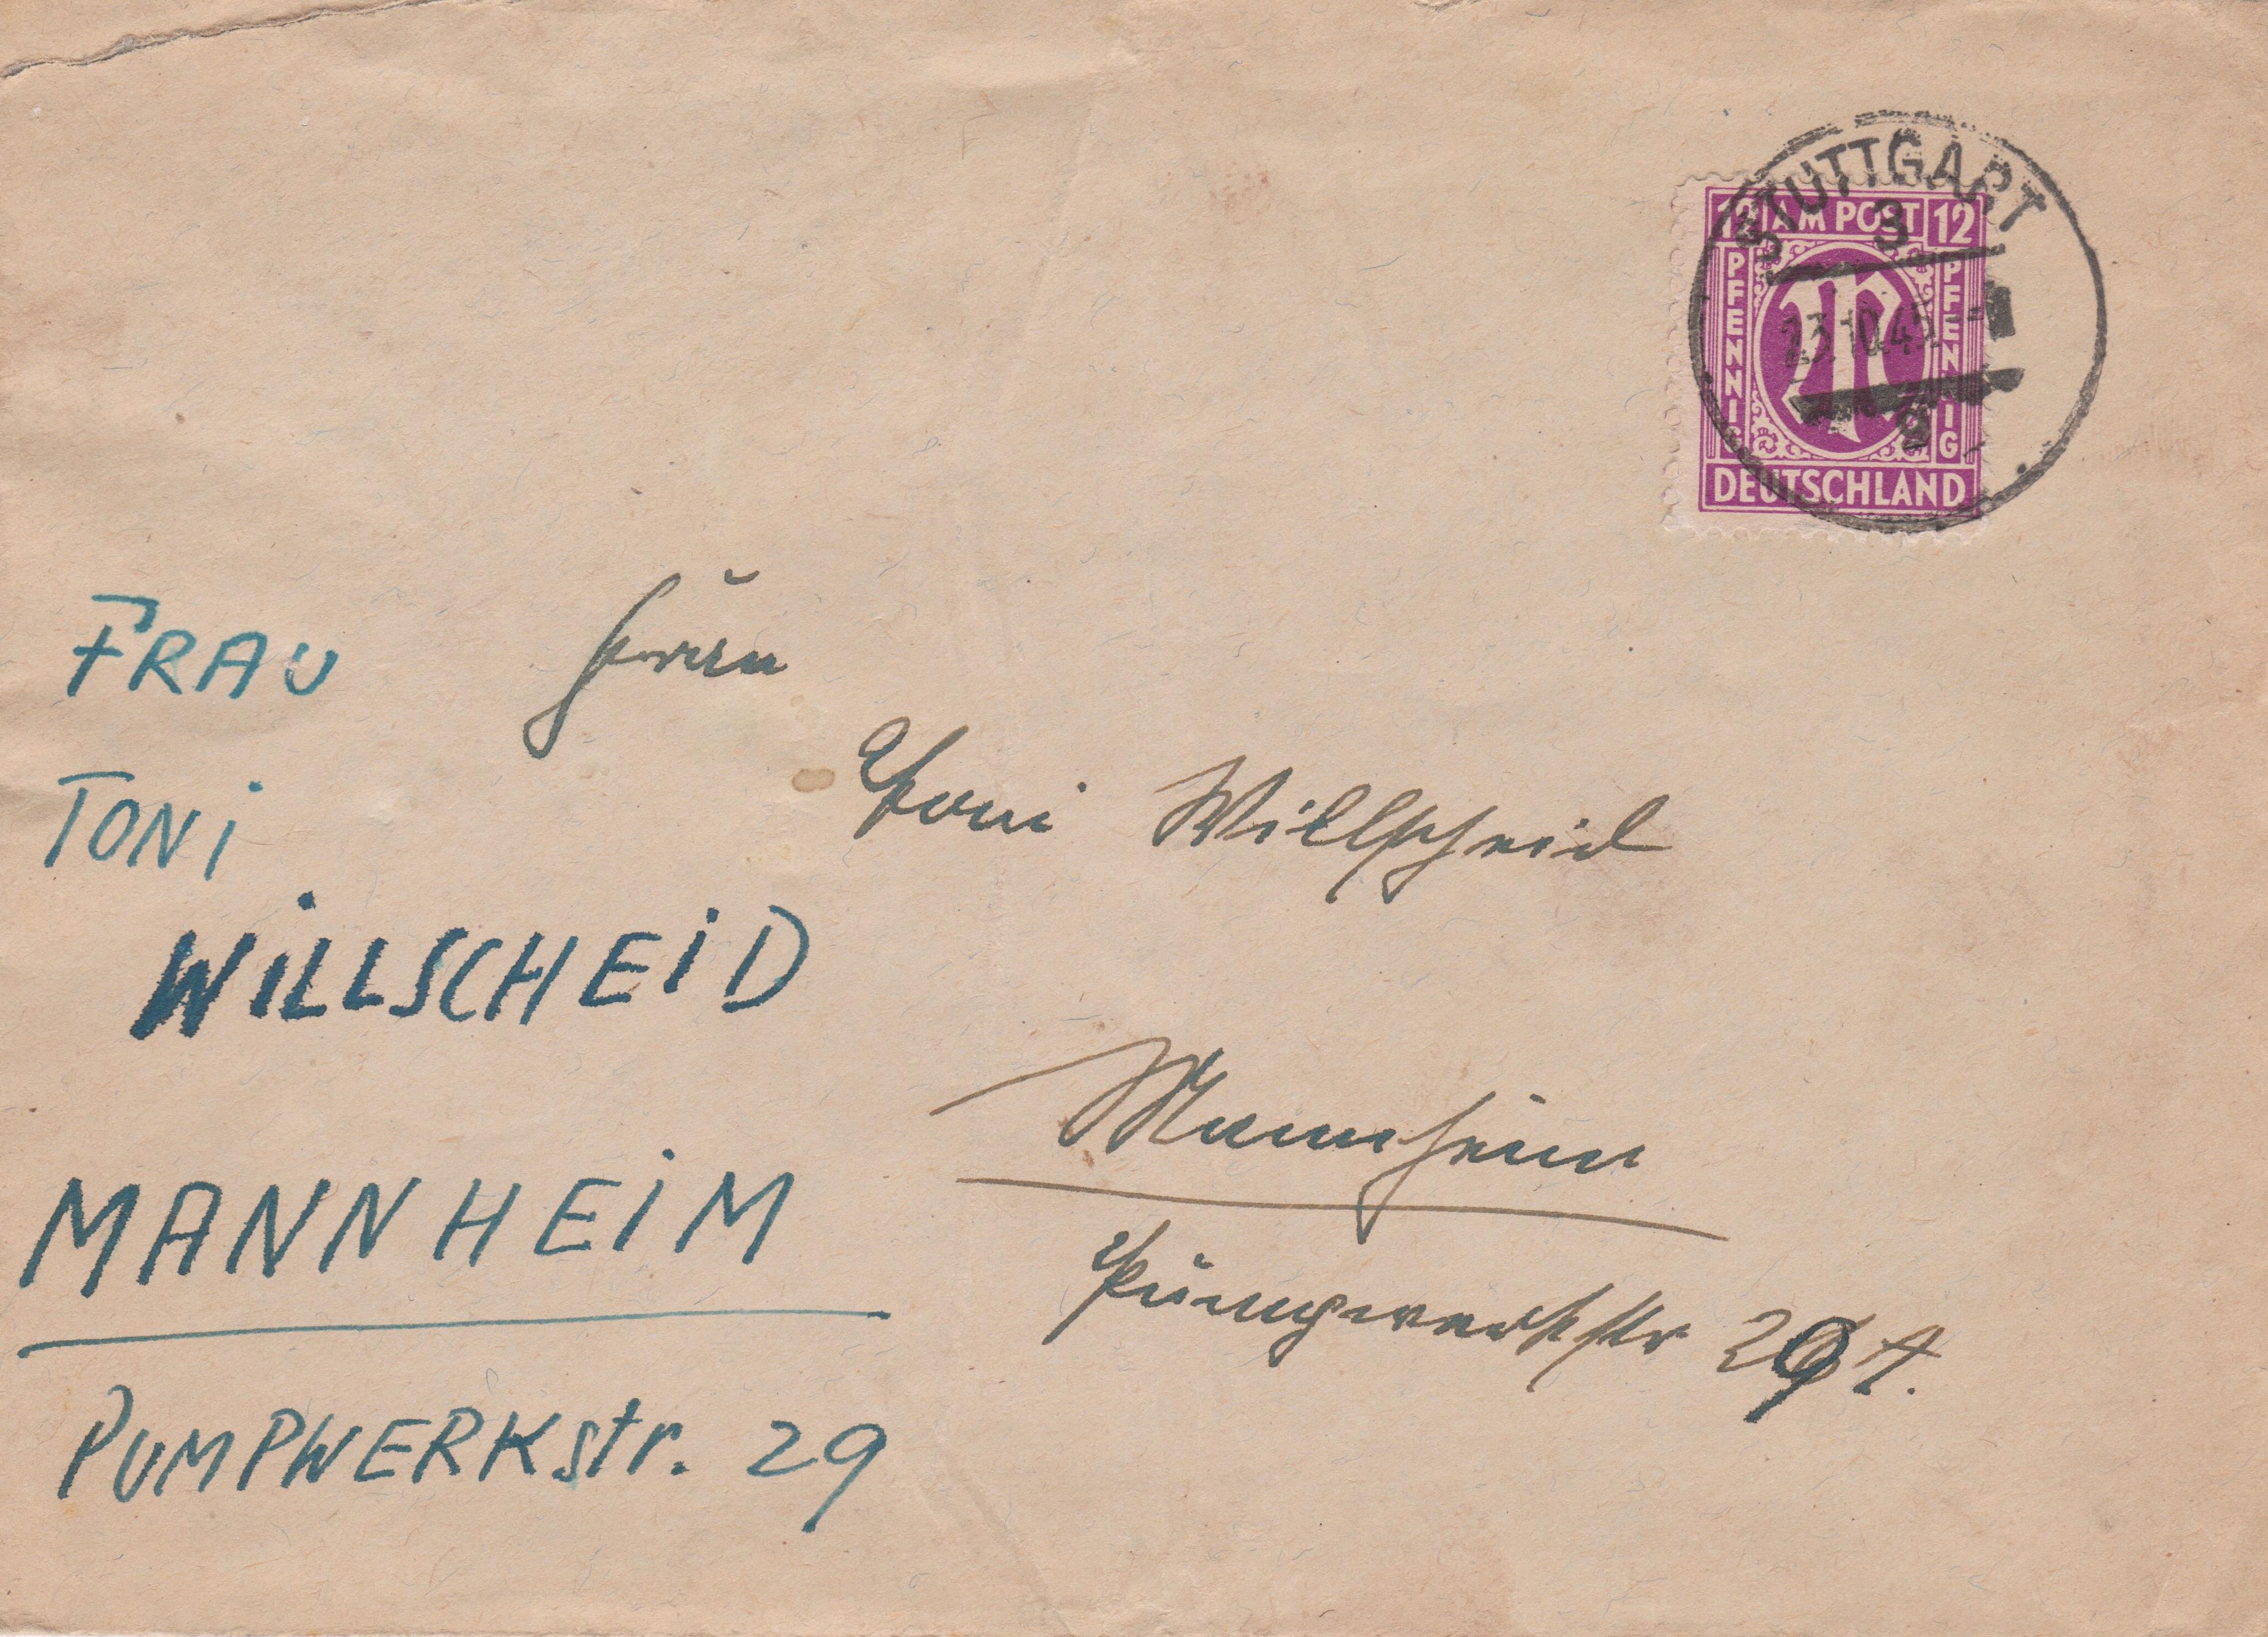 STUTTGART
3
12 AM POST 12
PFENNIG
PFENNIG
23.10.45
DEUTSCHLAND
FRAU
TONi
WiLLSCHEiD
MANNHEiM
PUMPWERKstr. 29
Frau
Toni Willscheid
Mannheim
Pumpwerkstr 29 A.